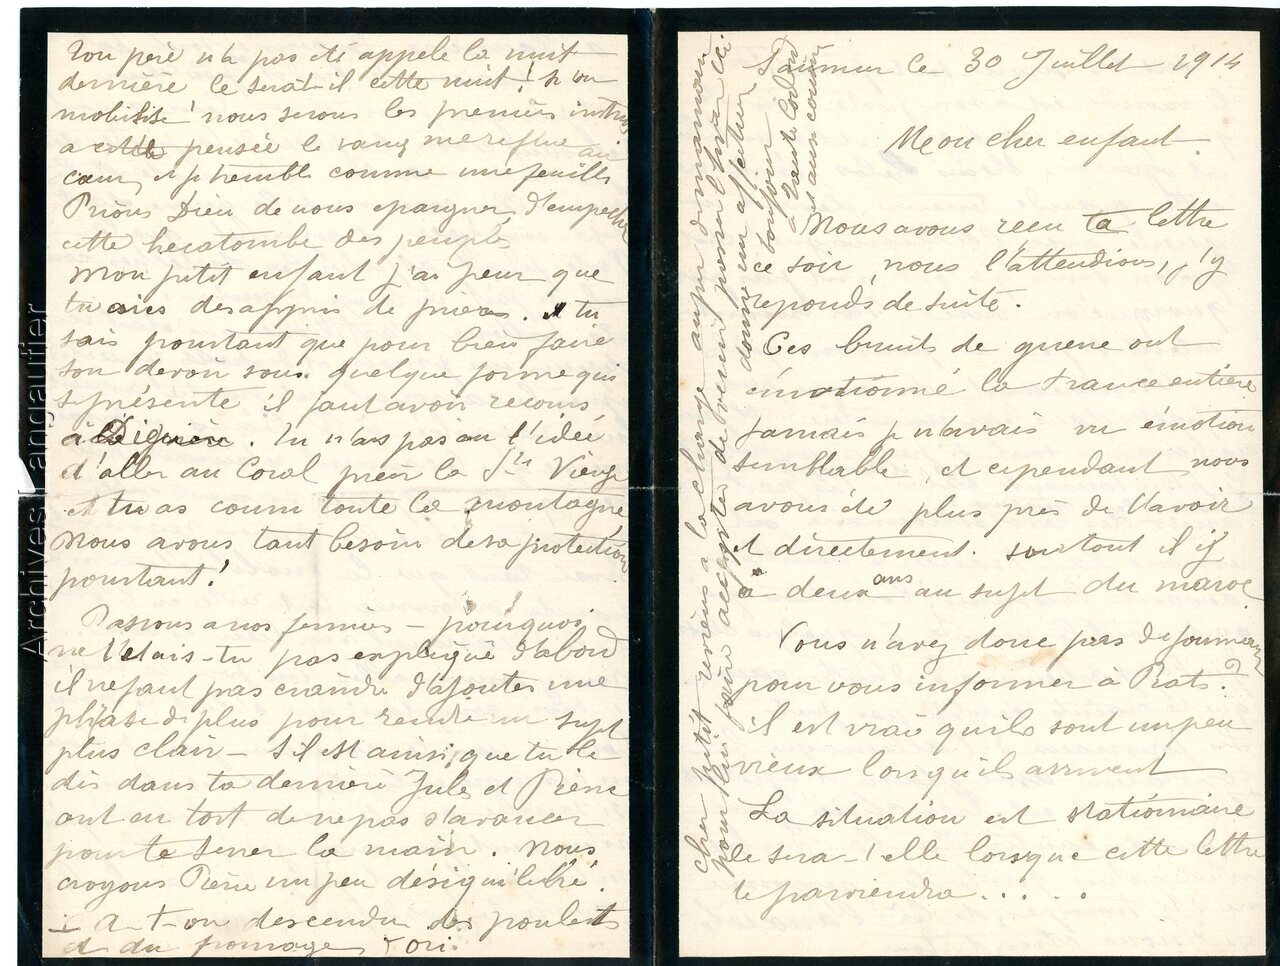 Saumur le 30 Juillet 1914
Mon cher enfant
Nous avons reçu ta lettre
ce soir, nous l'attendions, j'y
réponds de suite.
Ces bruits de guerre ont
émotionné la France entière
jamais je n'avais vu émotion
semblable, et cependant nous
avons été plus près de l'avoir
et directement. surtout il y
a deux ans au sujet du maroc
Vous n'avez donc pas de journeaux
pour vous informer à Prats?
il est vrai qu'ils sont un peu
vieux lorsqu'ils arrivent
La situation est stationnaire
le sera-t'elle lorsque cette lettre
te parviendra . . . .
cher petit reviens à la charge auprès de maman
pour lui faire accepter de venir passer l'hiver ici
donne mon affection
toujours
sans courir
Ton père n'a pas été appelé la nuit
dernière le serat-il cette nuit! si on
mobilise! nous serons les premiers instruits
a cette pensée le sang me reflue au
cœur, et je tremble comme une feuille
Prions Dieu de nous épargner, d'empecher
cette hecatombe des peuples
Mon petit enfant j'ai peur que
tu aies desappris de prier. et tu
sais pourtant que pour bien faire
son devoir sous quelque forme qui
se présente il faut avoir recours
à la Prière. Tu n'as pas eu l'idée
d'aller au Coral prier la Ste Vierge
et tu as couru toute la montagne
Nous avons tant besoin de sa protection
pourtant!
Passons a nos fermiers — pourquoi
ne l'étais-tu pas expliqué d'abord
il ne faut pas craindre d'ajouter une
phrase de plus pour rendre un sujet
plus clair — S'il est ainsi, que tu le
dis dans ta dernière Jules et Pierre
ont eu tort de ne pas s'avancer
pour te serrer la main. Nous
croyons Pierre un peu désiquilibré.
— a-t-on descendu des poulets
et du fromage
Archives Langautier